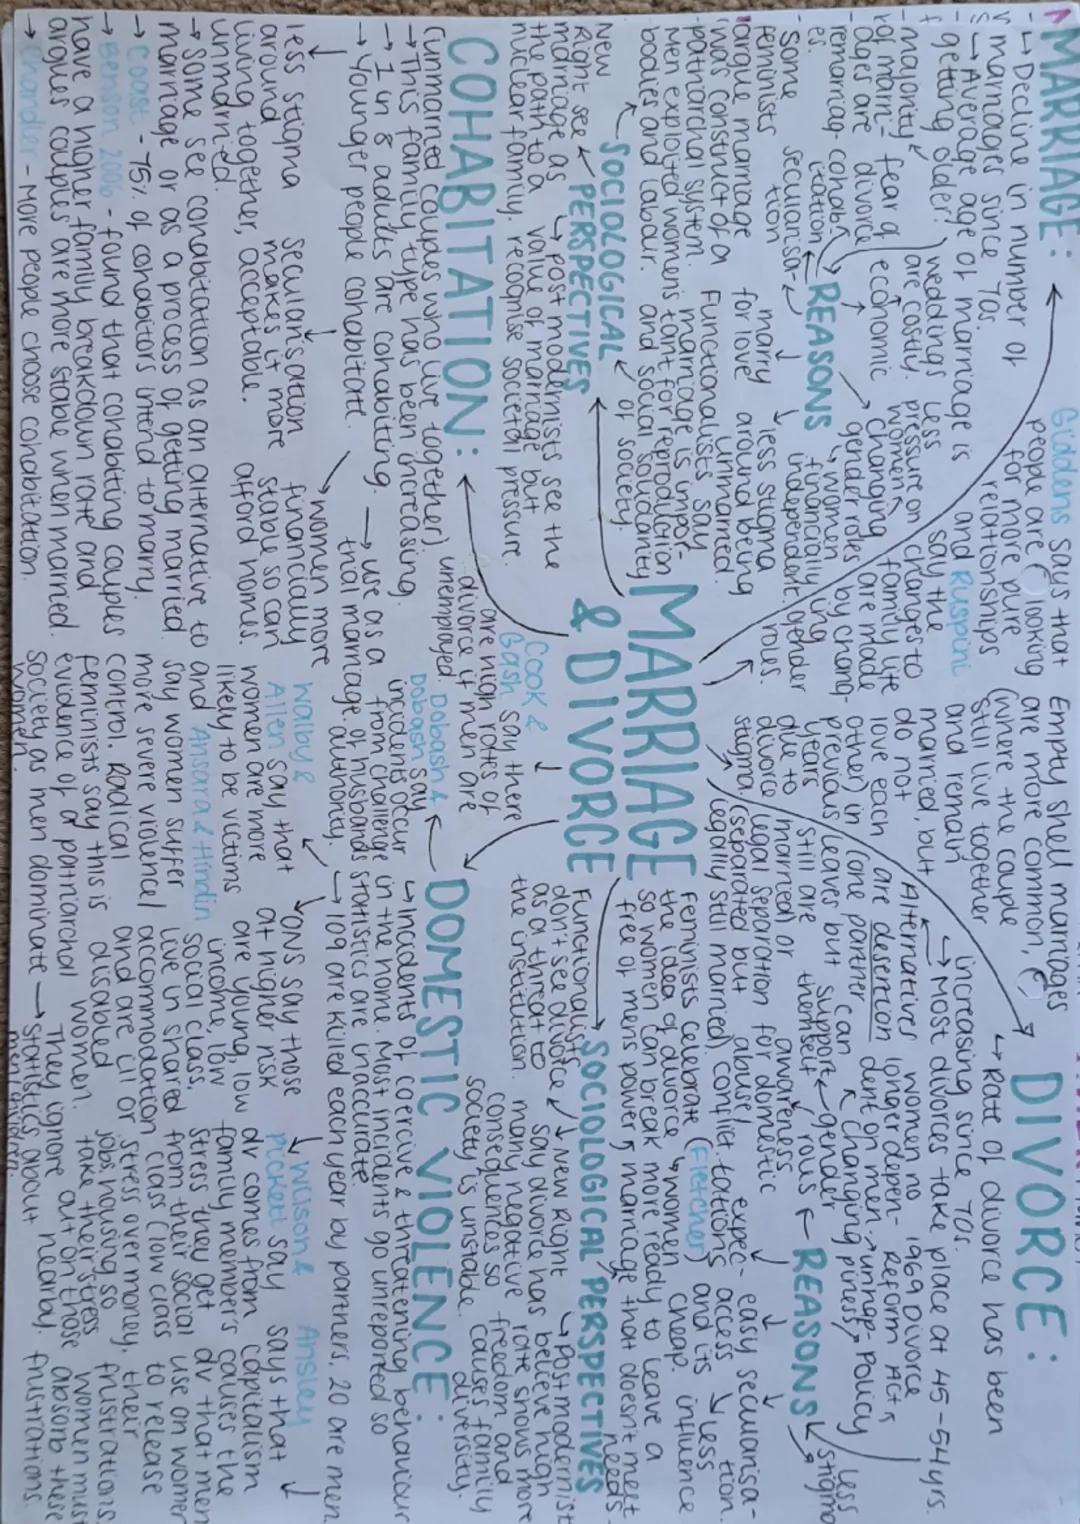 MARRIAGE:
↳ Decline in number of
marriages since 70s.
↳ Average age of marriage is
getting older.
- majority
of marri-
ages are
remarriag-
es.
fear of
divorce
cohab-
itation
weddings
are costly.
economic
REASONS
- some
feminists
argue marriage
was construct of a
patriarchal system.
Men exploited women's
bodies and labour.
secularisa-
tion
marry
for love
less stigma
around being
unmarried.
women
financially
independent.
less
pressure on
women
changing
gender roles
Giddens says that
people are looking
for more pure
relationships
and Ruspini
say the
changes to
family life
are made
by chang-
ing
gender
roles.
Functionalists say
marriage is impor-
tant for reproduction
and social solidarity
of society.
SOCIOLOGICAL
PERSPECTIVES
New
Right see
marriage as
the path to a
nuclear family.
↳ post modernists see the
value of marriage but
recognise societal pressure.
MARRIAGE
& DIVORCE
COHABITATION:
(unmarried couples who live together)
→ This family type has been increasing.
→ 1 in 8 adults are cohabiting.
→ Younger people cohabitate.
→ use as a
trial marriage.
less stigma
around
living together,
unmarried.
secularisation
makes it more
acceptable.
women more
financially
stable so can
afford homes.
→ Some see cohabitation as an alternative to
marriage or as a process of getting married.
→ Coast - 75% of cohabitors intend to marry.
→ Benson 2006 - found that cohabiting couples
have a higher family breakdown rate and
argues couples are more stable when married.
→ Chandler - More people choose cohabitation.
DIVORCE:
↳ Rate of divorce has been
increasing since 70s.
↳ Most divorces take place at 45-54yrs.
Empty shell marriages
are more common,
(where the couple
still live together
and remain
married, but
do not
love each
other) in
previous
years
due to
divorce
stigma
Alternatives
are desertion
(one partner
leaves but
still are
married) or
legal separation
(separated but
legally still married).
women no
longer depen-
dent on men
can
support
themself
1969 Divorce
Reform Act
Policy
unhap-
piness
changing
gender
roles
REASONS
less
stigma
awareness
for domestic
abuse/
conflict.
expec-
tations
easy
access
and its
cheap.
secularisa-
tion
less
influence
SOCIOLOGICAL PERSPECTIVES
Feminists celebrate (Fletcher)
the idea of divorce
so women can break
free of mens power
women
more ready to leave a
marriage that doesnt meet
needs.
Functionalists
don't see divorce
as a threat to
the institution.
↳ New Right
say divorce has
many negative
consequences so
society is unstable.
↳ Postmodernist
believe high
rate shows more
freedom and
cause family
diversity.
Cook &
Gash say there
are high rates of
divorce if men are
unemployed
DOMESTIC VIOLENCE:
↳ Incidents of coercive & threatening behaviour
in the home. Most incidents go unreported so
statistics are inaccurate.
↳ 109 are killed each year by partners, 20 are men.
Dobash &
Dobash say
incidents occur
from challenge
of husbands
authority.
Walby &
Allen say that
women are more
likely to be victims
and Ansara & Hindin
say women suffer
more severe violence/
control. Radical
feminists say this is
evidence of a patriarchal
society as men dominate
women.
ONS say those
at higher risk
are young, low
income, low
social class,
live in shared
accommodation
and are ill or
disabled
women.
They ignore
statistics about
men & children.
Wilson &
Pickett say
dv comes from
family members
stress they get
from their social
class (low class
stress over money,
jobs, housing so
take their stress
out on those
nearby.
Ansley
says that
capitalism
causes the
dv that men
use on women
to release
their
frustrations.
women must
absorb these
frustrations.